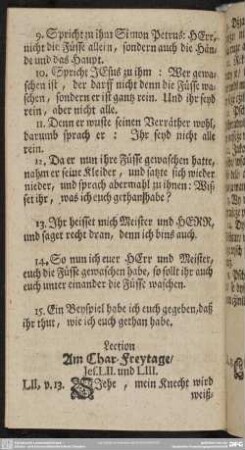 9. Spricht zu ihm Simon Petrus: HErr,
nicht die Füsse allein, sondern auch die Hän-
de und das Haupt.
10. Spricht JEsus zu ihm : Wer gewa-
schen ist, der darff nicht denn die Füsse wa-
schen, sondern er ist gantz rein. Und ihr seyd
rein, aber nicht alle.
11. Denn er wuste seinen Verräther wohl,
darumb sprach er : Ihr seyd nicht alle
rein.
12. Da er nun ihre Füsse gewaschen hatte,
nahm er seine Kleider, und satzte sich wieder
nieder, und sprach abermahl zu ihnen: Wis-
set ihr, was ich euch gethan habe?
13. Ihr heisset mich Meister und HERR,
und saget recht dran, denn ich bins auch.
14. So nun ich euer HErr und Meister,
euch die Füsse gewaschen habe, so sollt ihr auch
euch unter einander die Füsse waschen.
15. Ein Beyspiel habe ich euch gegeben, daß
ihr thut, wie ich euch gethan habe.
Lection
Am Char-Freytage/
Jes. LII. und LIII.
LII, v. 13. Siehe, mein Knecht wird
weiß-